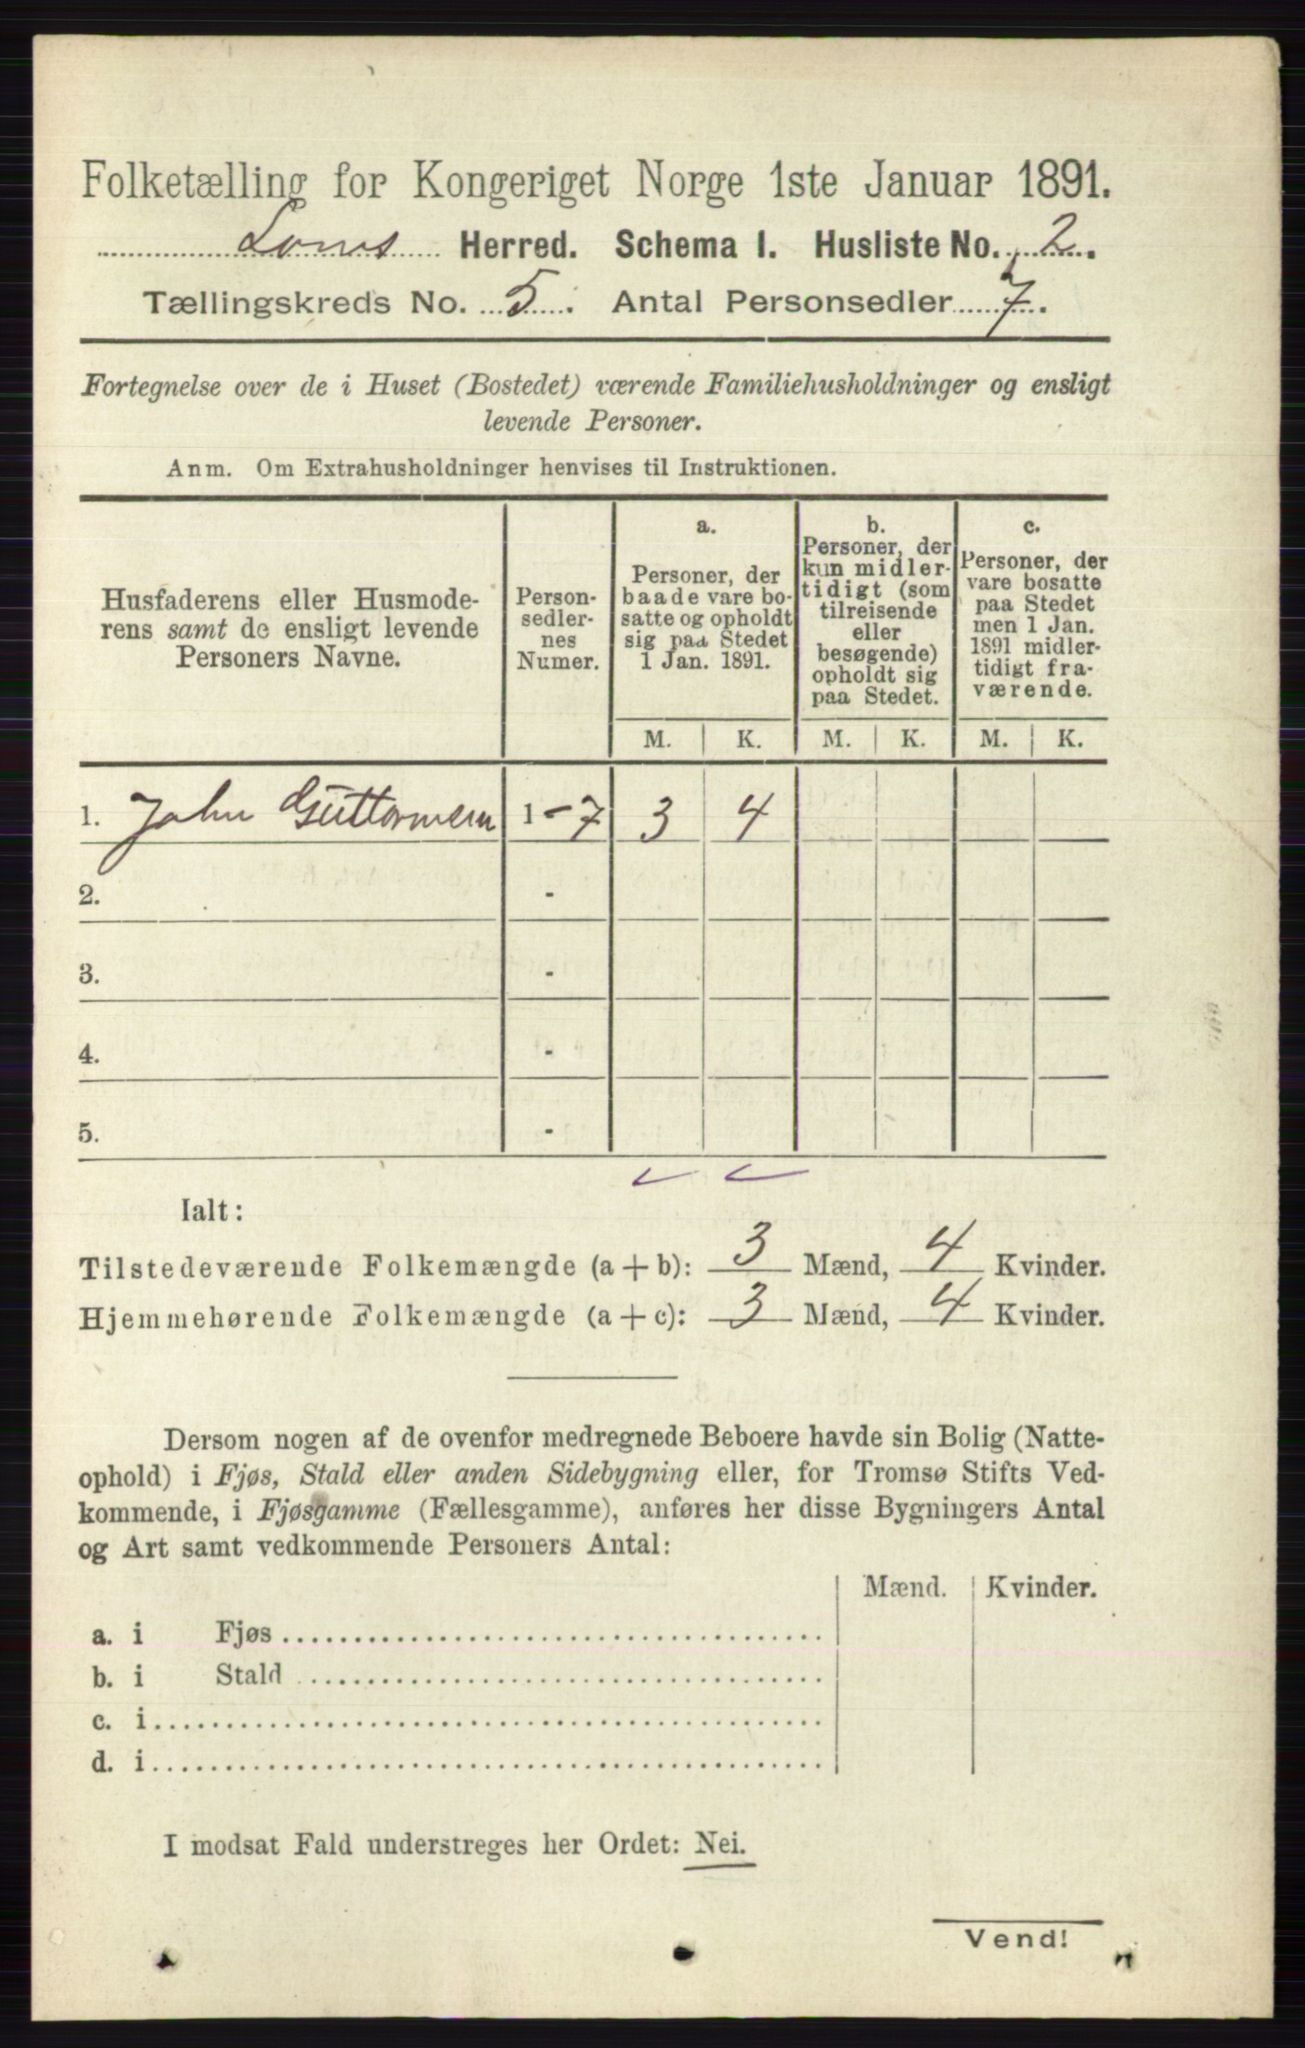 Folketælling for Kongeriget Norge 1ste Januar 1891.
Loms Herred. Schema I. Husliste No. 2.
Tællingskreds No. 5. Antal Personsedler 7.
Fortegnelse over de i Huset (Bostedet) værende Familiehusholdninger og ensligt
levende Personer.
Anm. Om Extrahusholdninger henvises til Instruktionen.
Husfaderens eller Husmode-
rens samt de ensligt levende
Personers Navne.
Person-
sedler-
nes
Numer.
a.
Personer, der
baade vare bo-
satte og opholdt
sig paa Stedet
1 Jan. 1891.
b.
Personer, der
kun midler-
tidigt (som
tilreisende
eller
besøgende)
opholdt sig
paa Stedet.
c.
Personer, der
vare bosatte
paa Stedet
men 1 Jan.
1891 midler-
tidigt fra-
værende.
M. K. M. K. M. K.
1. John Guttormsen 1 - 7 3 4
2. -
3. -
4. -
5. -
Ialt:
Tilstedeværende Folkemængde (a + b): 3 Mænd, 4 Kvinder.
Hjemmehørende Folkemængde (a + c): 3 Mænd, 4 Kvinder.
Dersom nogen af de ovenfor medregnede Beboere havde sin Bolig (Natte-
ophold) i Fjøs, Stald eller anden Sidebygning eller, for Tromsø Stifts Ved-
kommende, i Fjøsgamme (Fællesgamme), anføres her disse Bygningers Antal
og Art samt vedkommende Personers Antal:
Mænd. Kvinder.
a. i Fjøs
b. i Stald
c. i
d. i
I modsat Fald understreges her Ordet: Nei.
Vend!